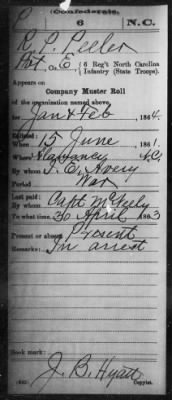 P
Confederate.
6 N.C.
R. P. Peeler
Pvt, Co. E, 6 Reg't North Carolina
Infantry (State Troops).
Appears on
Company Muster Roll
of the organization named above,
for Jan & Feb, 1864.
Enlisted:
When 15 June, 1861.
Where N.C.
By whom I. E. Avery
Period War
Last paid:
By whom Capt McNeely
To what time 30 April, 1863.
Present or absent Present
Remarks: In arrest
Book mark:
J. B. Hyatt
(642) Copyist.